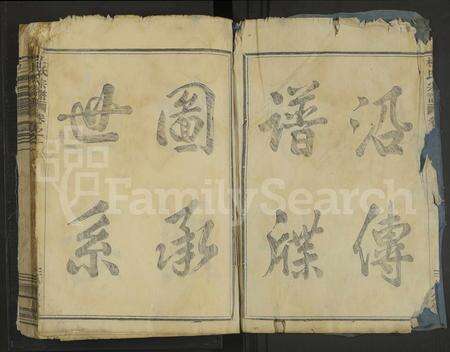 沿傳
譜牒
圖承
世系
FamilySearch